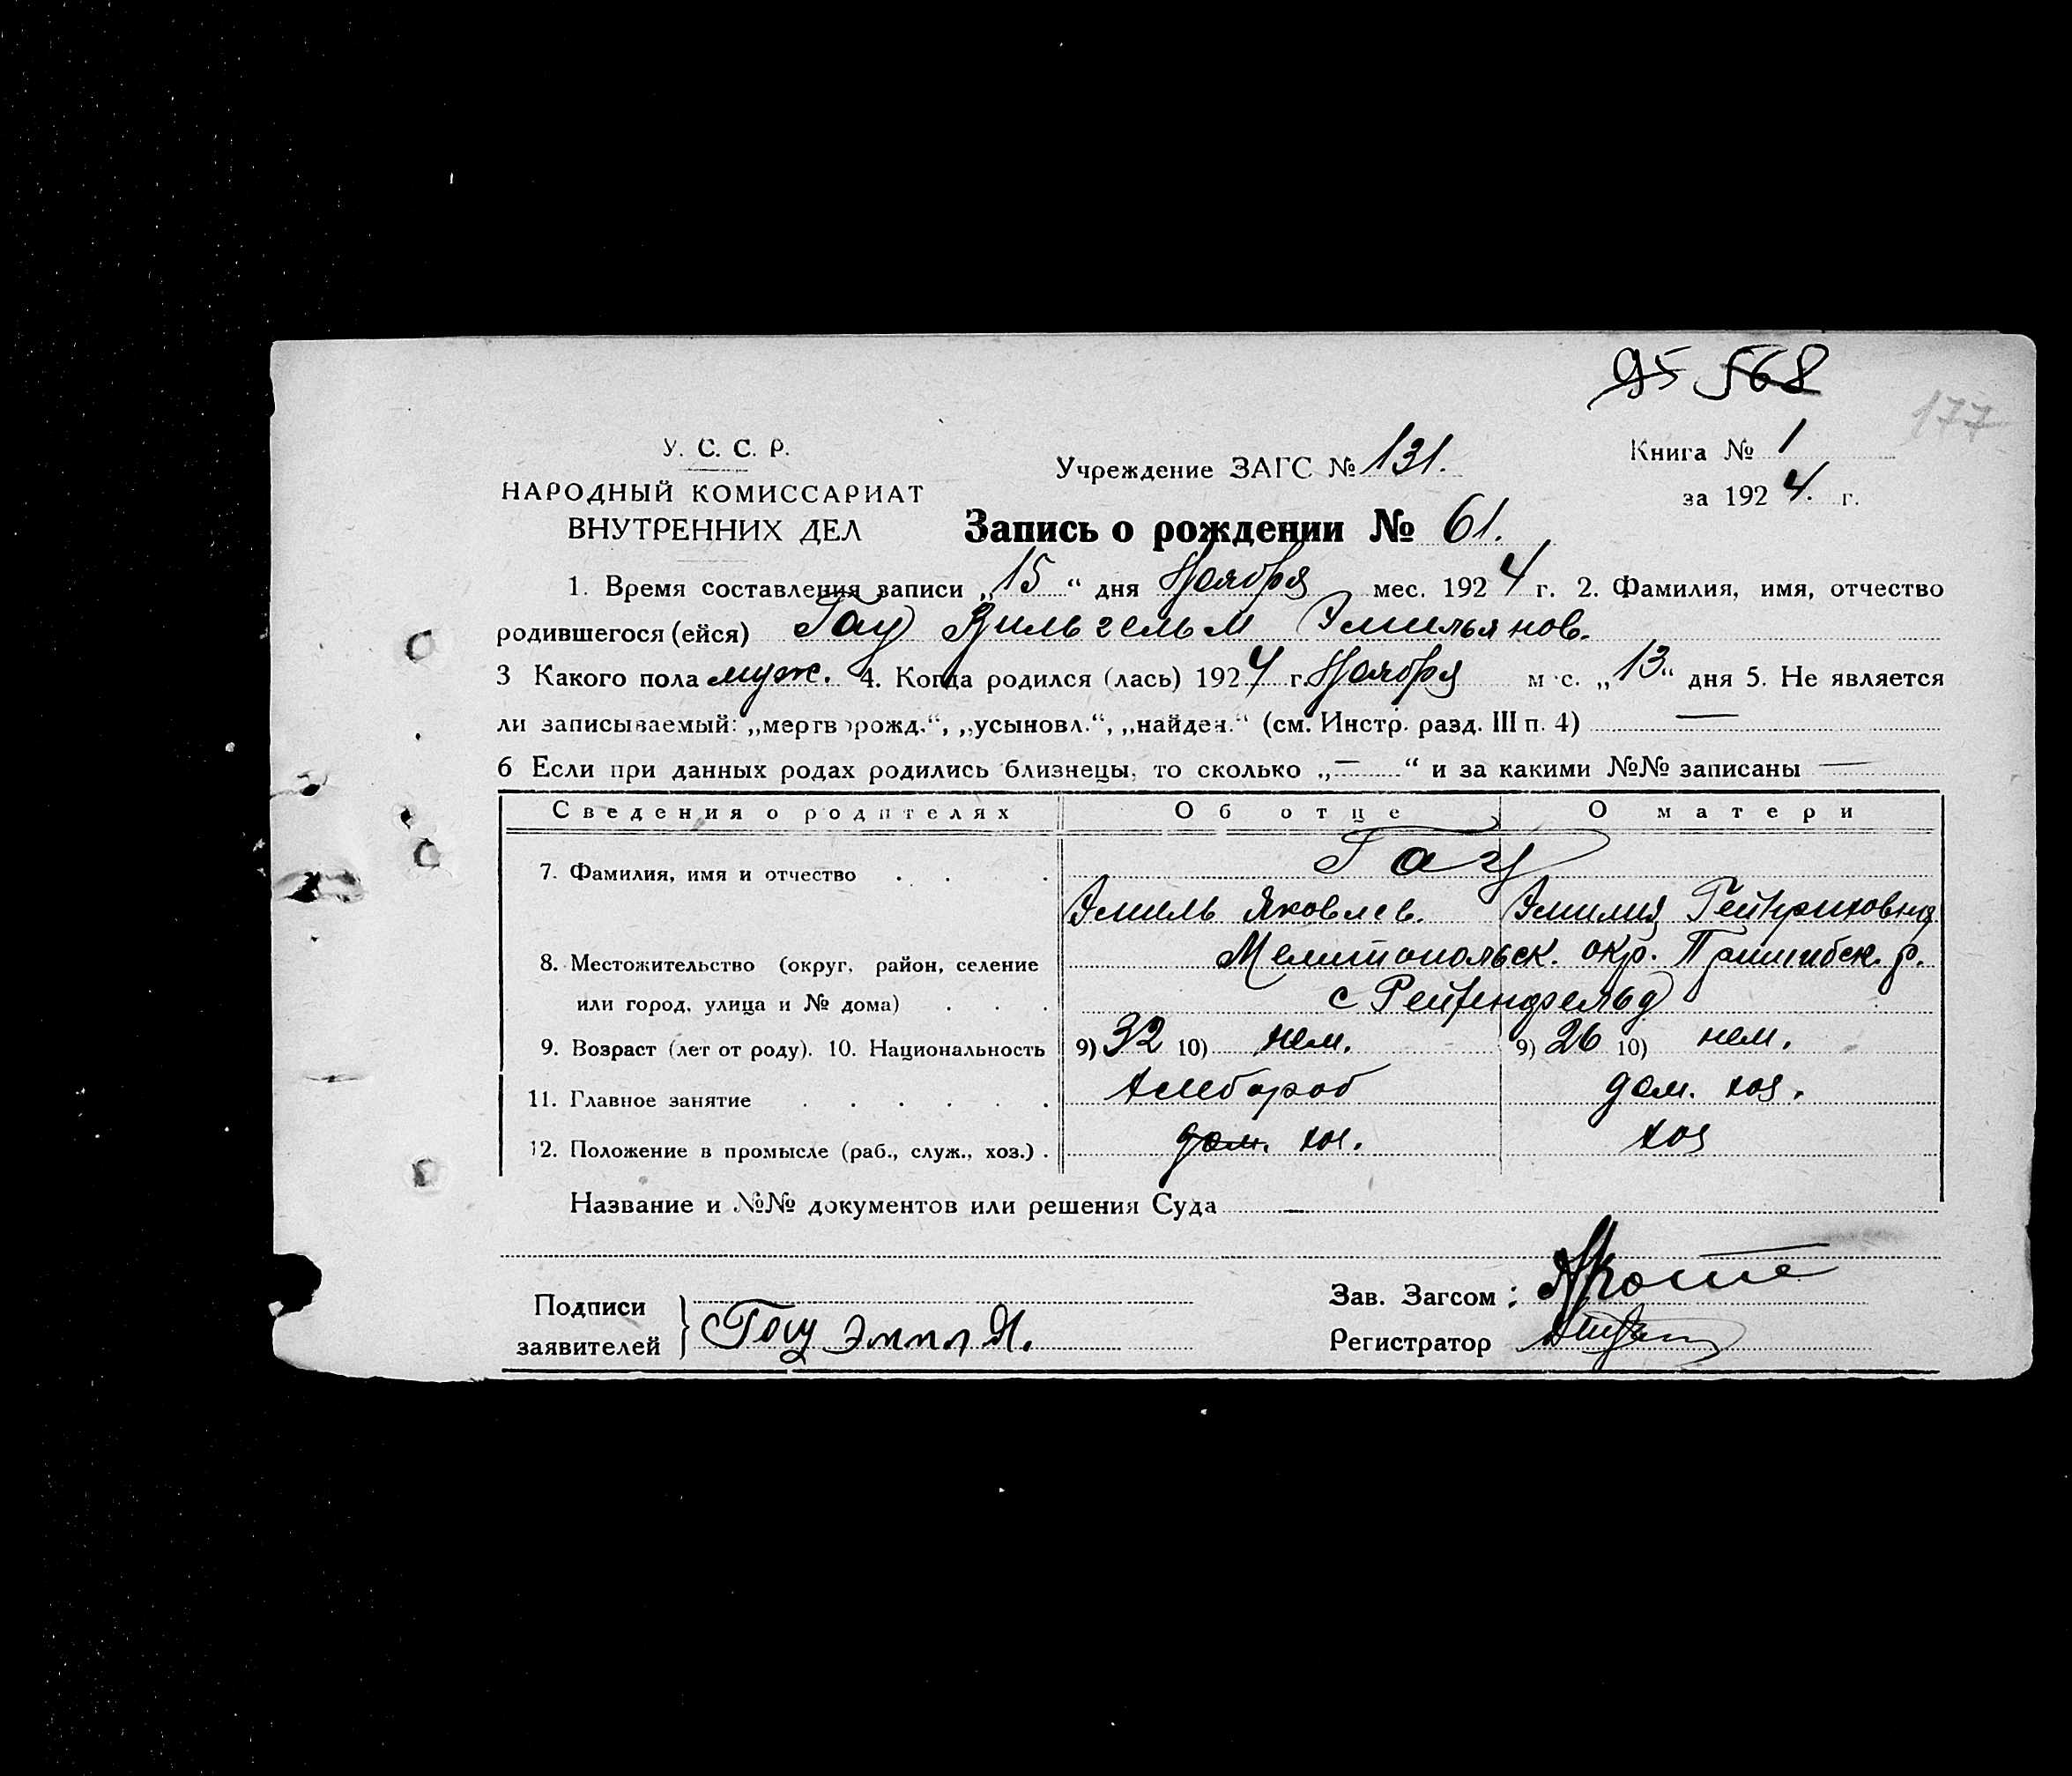 95 568
177
У. С. С. Р.
НАРОДНЫЙ КОМИССАРИАТ
ВНУТРЕННИХ ДЕЛ
Учреждение ЗАГС № 131.
Книга № 1
за 1924. г.
Запись о рождении № 61.
1. Время составления записи „15“ дня Ноября мес. 1924 г. 2. Фамилия, имя, отчество
родившегося (ейся) Гау Вильгельм Эмильянов.
3 Какого пола муж. 4. Когда родился (лась) 1924 г. Ноября м с. „13“ дня 5. Не является
ли записываемый: „мертворожд.“, „усыновл.“, „найден.“ (см. Инстр. разд. III п. 4) —
6 Если при данных родах родились близнецы, то сколько „—“ и за какими №№ записаны —
Сведения о родителях Об отце О матери
7. Фамилия, имя и отчество . . . Гау
Эмиль Яковлев. Эмилия Гейнриховна
8. Местожительство (округ, район, селение Мелитопольск. окр. Пришибск. р.
или город, улица и № дома) . . . с Рейхенфельд
9. Возраст (лет от роду). 10. Национальность 9) 32 10) нем. 9) 26 10) нем.
11. Главное занятие . . . . . . Хлебороб дом. хоз.
12. Положение в промысле (раб., служ., хоз.) . дом. хоз. хоз
Название и №№ документов или решения Суда —
Подписи
заявителей } Гау Эмил Я.
Зав. Загсом :
Регистратор